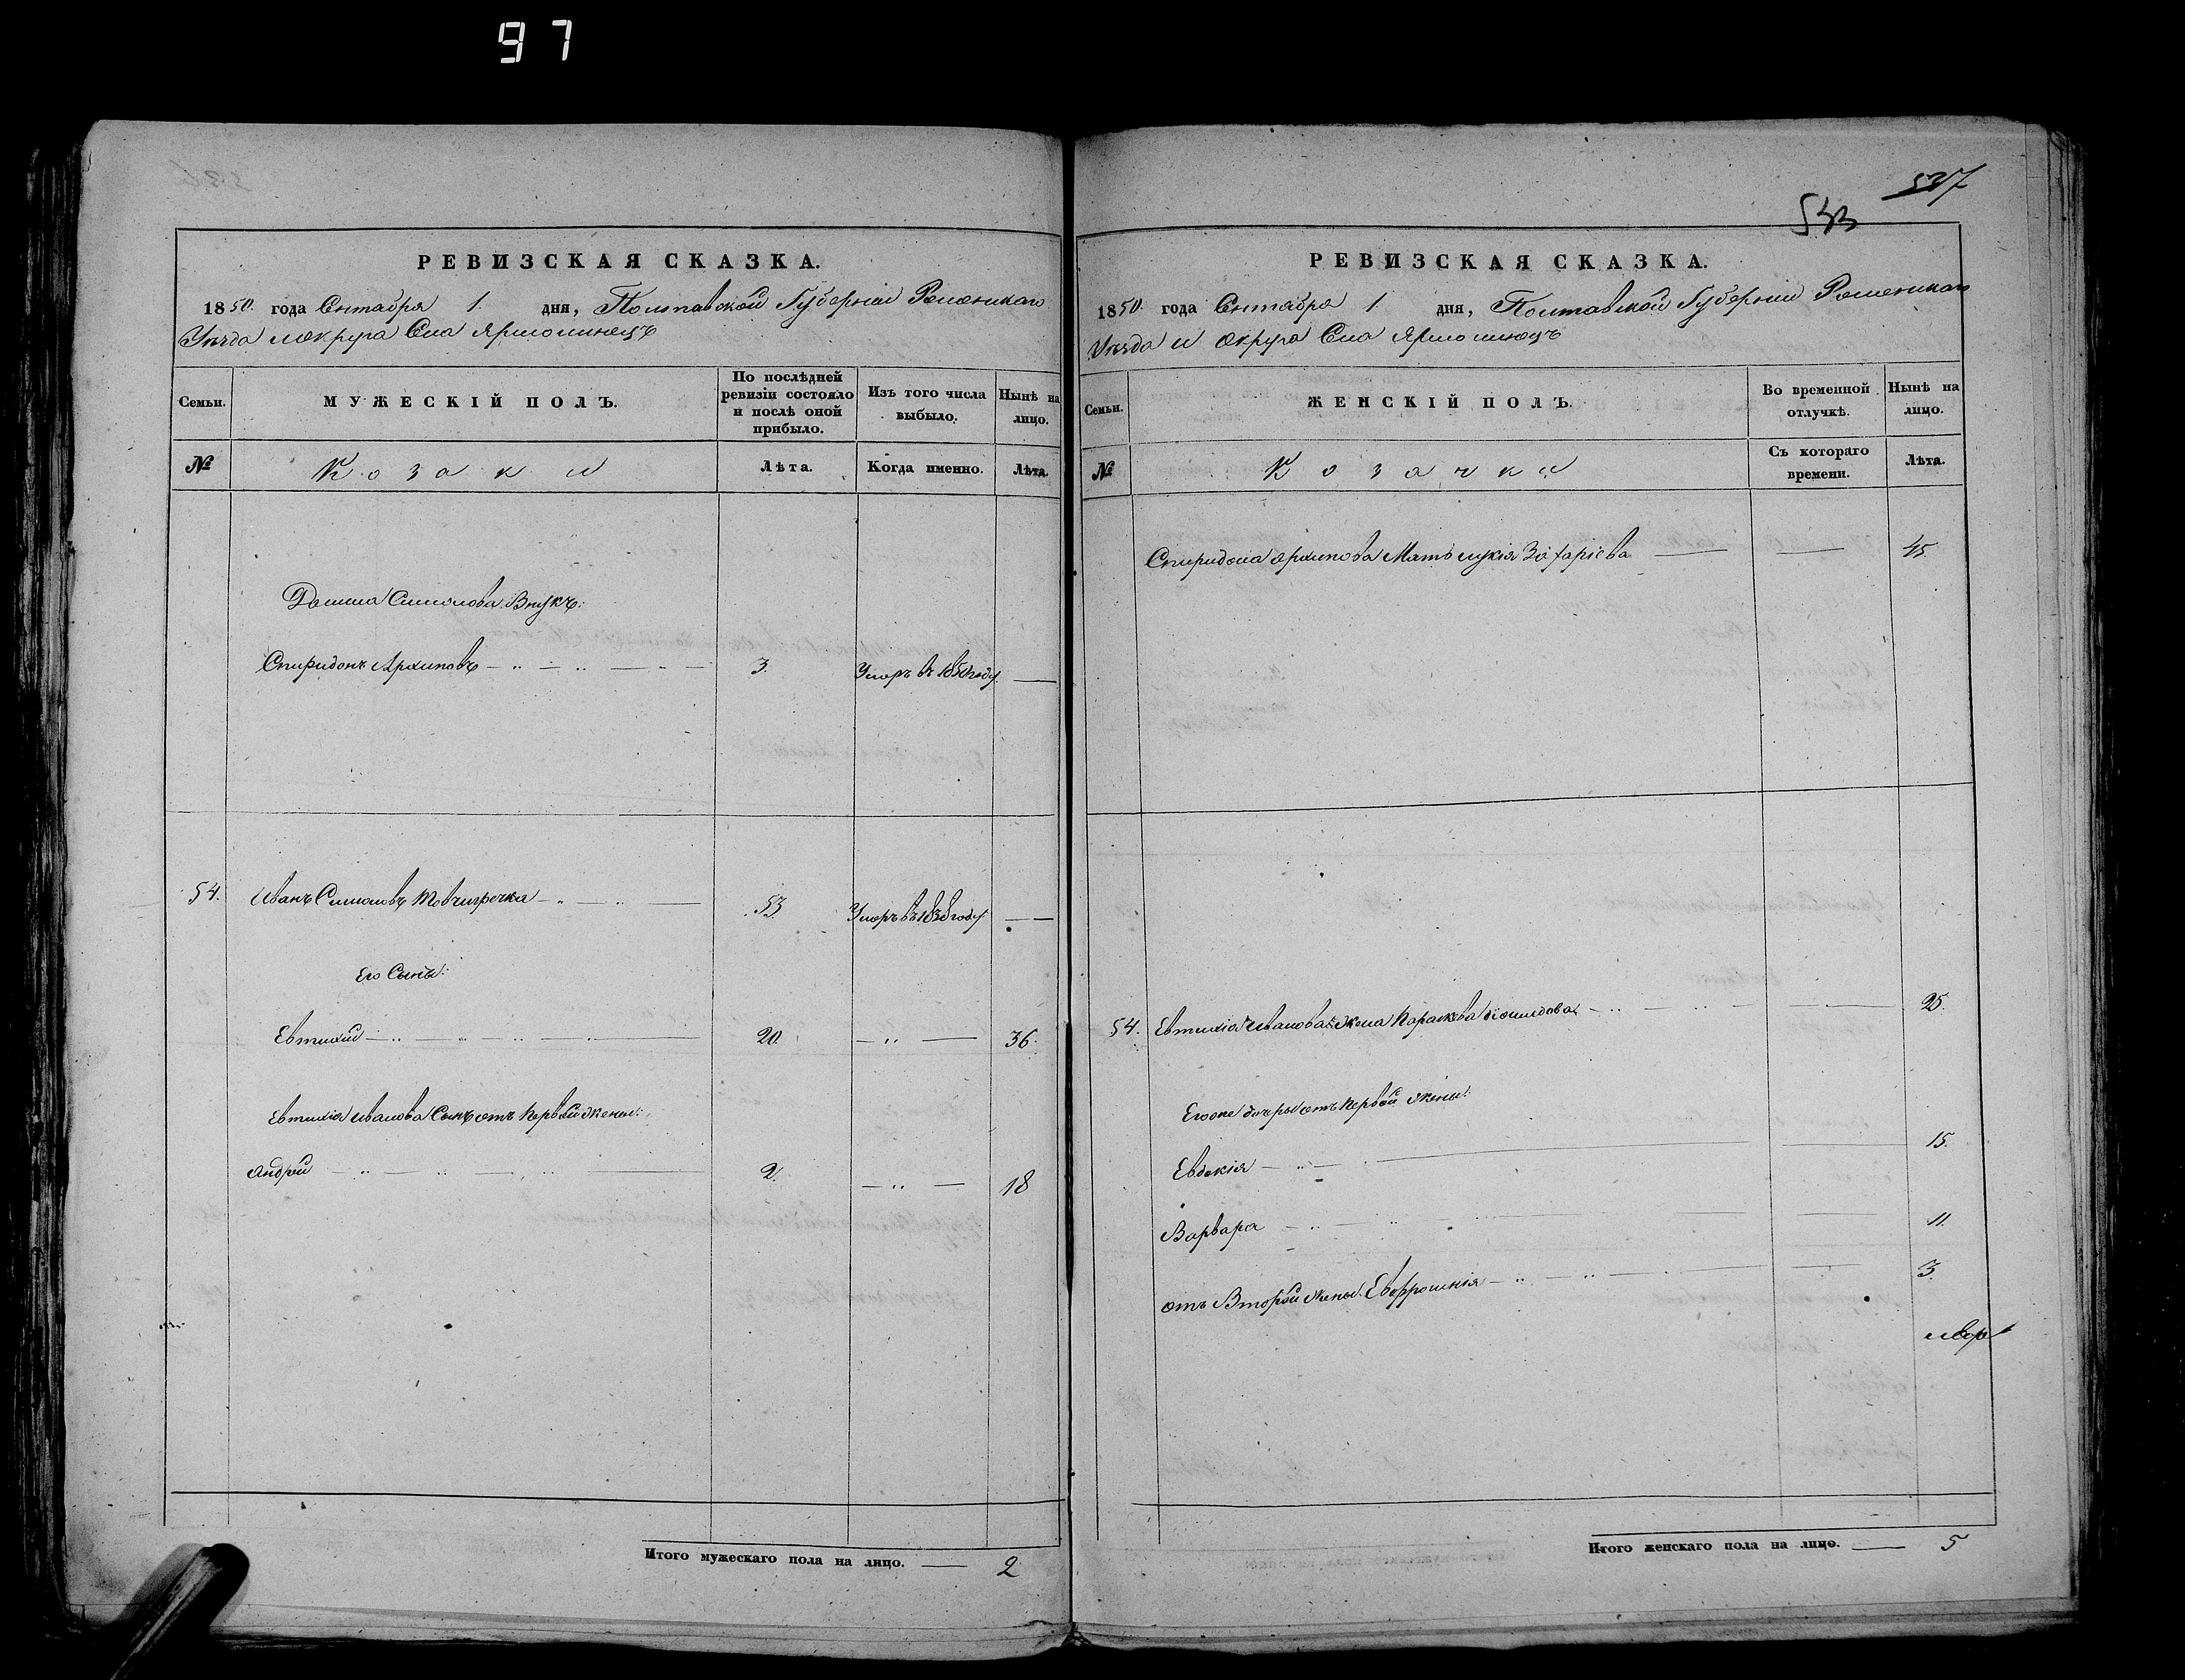 97
РЕВИЗСКАЯ СКАЗКА.
1850. года Сентября 1. дня, Полтавской Губерніи Роменскаго
Уѣзда и округа Села Ярмолинецъ
Семьи.
МУЖЕСКІЙ ПОЛЪ.
По послѣдней ревизіи состояло и послѣ оной прибыло.
Изъ того числа выбыло.
Нынѣ на лицо.
№
Козаки
Лѣта.
Когда именно.
Лѣта.
Симонова Внукъ:
Спиридонъ Архиповъ 3. Умеръ въ 1850 году
54. Иванъ Симоновъ 53 Умеръ въ 1838 году
Его Сыны:
Евтихій 20. 36.
Евтихія Иванова Сынъ отъ первой жены:
Андрей 2. 18
Итого мужескаго пола на лицо. 2
537
543
РЕВИЗСКАЯ СКАЗКА.
1850. года Сентября 1 дня, Полтавской Губерніи Роменскаго
Уѣзда и округа Села Ярмолинецъ
Семьи.
ЖЕНСКІЙ ПОЛЪ.
Во временной отлучкѣ.
Нынѣ на лицо.
№
Козачки
Съ котораго времени.
Лѣта.
Спиридона Архипова Мать Захаріева 45.
54. Евтихія Иванова жена Параскева 25.
Его же дочери отъ первой жены:
Евдокія 15.
Варвара 11.
отъ Второй жены. Евфросинія 3.
Итого женскаго пола на лицо. 5